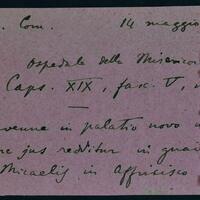 . Com. 14 maggio
Ospedale della Misericor
Caps. XIX, fasc. V,
venne in palatio novo
re jus redditur in qua
Micaelis in Affricisco